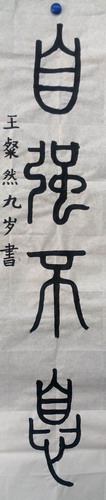 自强不息
王粲然九岁书